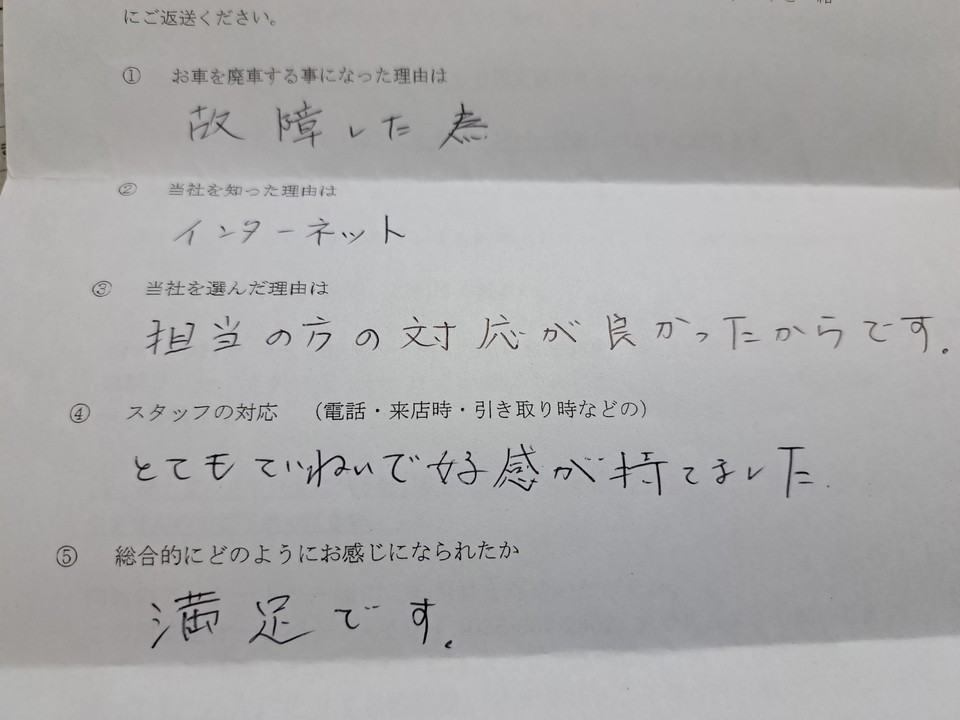 にご返送ください。
① お車を廃車する事になった理由は
故障した為
② 当社を知った理由は
インターネット
③ 当社を選んだ理由は
担当の方の対応が良かったからです。
④ スタッフの対応 （電話・来店時・引き取り時などの）
とてもていねいで好感が持てました.
⑤ 総合的にどのようにお感じになられたか
満足です。